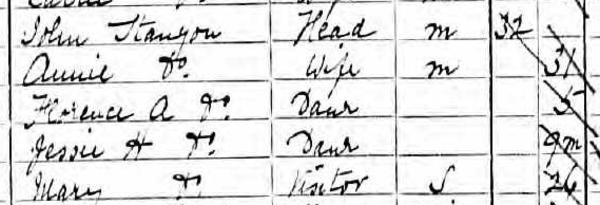 John Stanyon Head m 32
Annie Do Wife m 31
Florence A Do Daur 5
Jessie H Do Daur 9m
Mary Do Visitor S 26